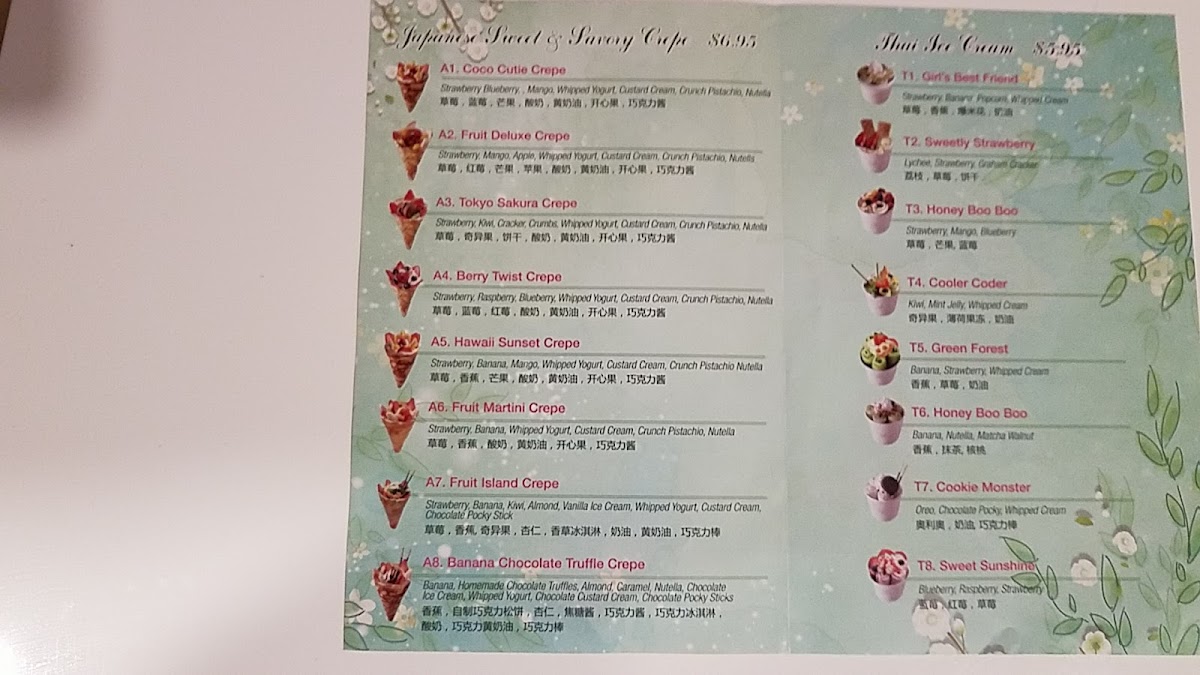 Japanese Sweet & Savory Crepe $6.95
A1. Coco Cutie Crepe
Strawberry Blueberry, , Mango, Whipped Yogurt, Custard Cream, Crunch Pistachio, Nutella
草莓，蓝莓，芒果，酸奶，黄奶油，开心果，巧克力酱
A2. Fruit Deluxe Crepe
Strawberry, Mango, Apple, Whipped Yogurt, Custard Cream, Crunch Pistachio, Nutella
草莓，红莓，芒果，苹果，酸奶，黄奶油，开心果，巧克力酱
A3. Tokyo Sakura Crepe
Strawberry, Kiwi, Cracker, Crumbs, Whipped Yogurt, Custard Cream, Crunch Pistachio, Nutella
草莓，奇异果，饼干，酸奶，黄奶油，开心果，巧克力酱
A4. Berry Twist Crepe
Strawberry, Raspberry, Blueberry, Whipped Yogurt, Custard Cream, Crunch Pistachio, Nutella
草莓，蓝莓，红莓，酸奶，黄奶油，开心果，巧克力酱
A5. Hawaii Sunset Crepe
Strawberry, Banana, Mango, Whipped Yogurt, Custard Cream, Crunch Pistachio Nutella
草莓，香蕉，芒果，酸奶，黄奶油，开心果，巧克力酱
A6. Fruit Martini Crepe
Strawberry, Banana, Whipped Yogurt, Custard Cream, Crunch Pistachio, Nutella
草莓，香蕉，酸奶，黄奶油，开心果，巧克力酱
A7. Fruit Island Crepe
Strawberry, Banana, Kiwi, Almond, Vanilla Ice Cream, Whipped Yogurt, Custard Cream,
Chocolate Pocky Stick
草莓，香蕉, 奇异果，杏仁，香草冰淇淋，奶油，黄奶油，巧克力棒
A8. Banana Chocolate Truffle Crepe
Banana, Homemade Chocolate Truffles, Almond, Caramel, Nutella, Chocolate
Ice Cream, Whipped Yogurt, Chocolate Custard Cream, Chocolate Pocky Sticks
香蕉，自制巧克力松饼，杏仁，焦糖酱，巧克力酱，巧克力冰淇淋，
酸奶，巧克力黄奶油，巧克力棒
Thai Ice Cream $5.95
T1. Girl's Best Friend
Strawberry, Banana, Popcorn, Whipped Cream
草莓，香蕉，爆米花，奶油
T2. Sweetly Strawberry
Lychee, Strawberry, Graham Cracker
荔枝，草莓，饼干
T3. Honey Boo Boo
Strawberry, Mango, Blueberry
草莓，芒果, 蓝莓
T4. Cooler Coder
Kiwi, Mint Jelly, Whipped Cream
奇异果，薄荷果冻，奶油
T5. Green Forest
Banana, Strawberry, Whipped Cream
香蕉，草莓，奶油
T6. Honey Boo Boo
Banana, Nutella, Matcha Walnut
香蕉，抹茶, 核桃
T7. Cookie Monster
Oreo, Chocolate Pocky, Whipped Cream
奥利奥，奶油, 巧克力棒
T8. Sweet Sunshine
Blueberry, Raspberry, Strawberry
蓝莓，红莓，草莓